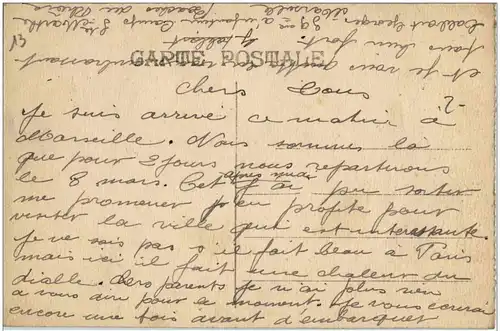 CARTE POSTALE
13
2
Chers tous
Je suis arrivé ce matin à
Marseille. Nous sommes là
que pour 2 jours nous repartirons
le 8 mars. Cet après midi j'ai pu sortir
me promener j'en profite pour
visiter la ville qui est intéressante.
Je ne sais pas s'il fait beau à Paris
mais ici il fait une chaleur du
diable. Chers parents je n'ai plus rien
a vous dire pour le moment. Je vous écrirai
encore une fois avant d'embarquer
et je vous
tous bien fort
Georges
Marseille